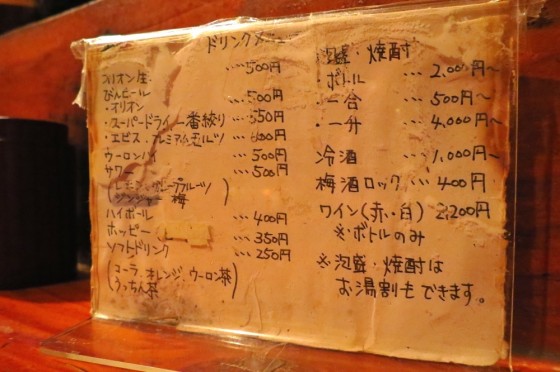 ドリンクメニュー
オリオン生 ・・・500円
びんビール
・オリオン ・・・500円
・スーパードライ 一番絞り ・・・550円
・エビス プレミアムモルツ ・・・600円
ウーロンハイ ・・・500円
サワー ・・・550円
(レモン、グレープフルーツ
ジンジャー 梅)
ハイボール ・・・400円
ホッピー ・・・350円
ソフトドリンク ・・・250円
(コーラ、オレンジ、ウーロン茶
うっちん茶)
泡盛・焼酎
・ボトル ・・・2,000円〜
・一合 ・・・500円〜
・一升 ・・・4,000円〜
冷酒 ・・・1,000円〜
梅酒ロック・・・400円
ワイン(赤・白) 2,200円
※ボトルのみ
※泡盛・焼酎は
お湯割もできます。